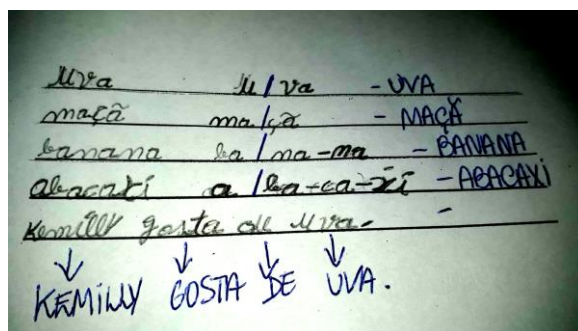 uva u/va - UVA
maçã ma/çã - MAÇÃ
banana ba/na-na - BANANA
abacaxi a/ba-ca-xi - ABACAXI
Kemilly gosta de uva. -
KEMILLY GOSTA DE UVA.